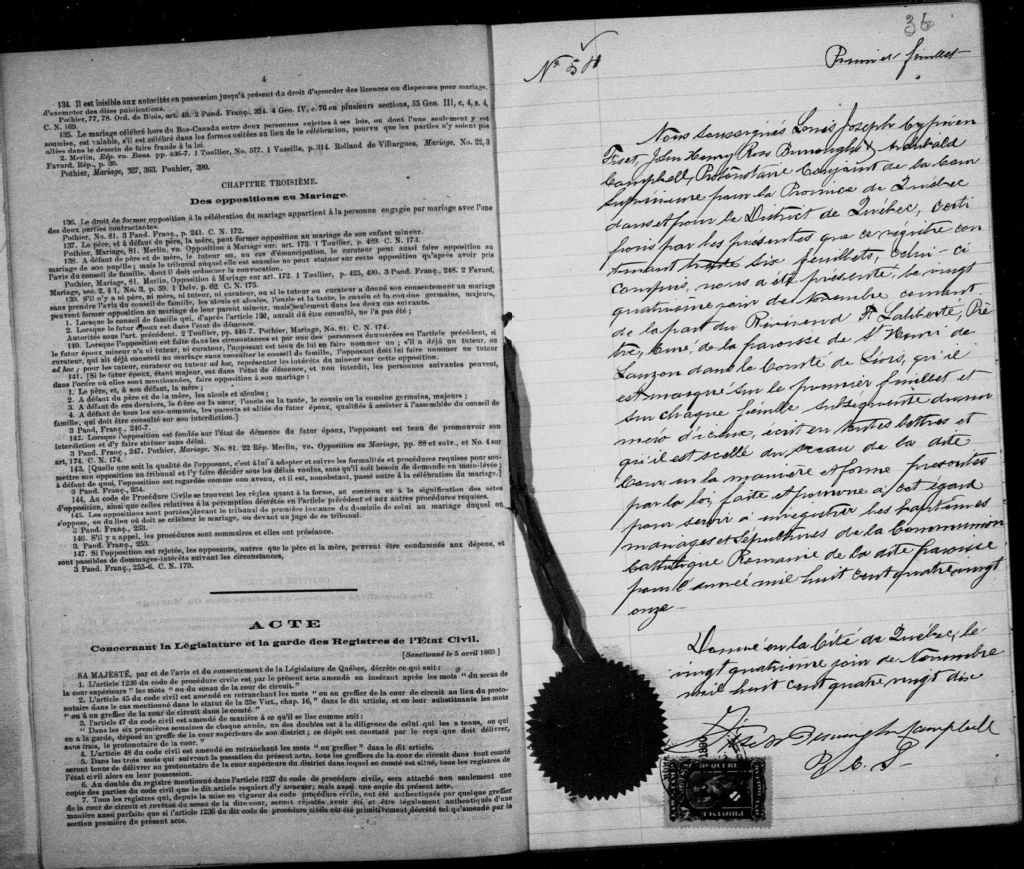 4
134. Il est loisible aux autorités en possession jusqu'à présent du droit d'accorder des licences ou dispenses pour mariage,
d'exempter des dites publications.
Pothier, 77, 78. Ord. de Blois, art. 40. 2 Pand. Franç., 324. 4 Geo. IV, c. 76 en plusieurs sections, 35 Geo. III, c. 4, s. 4,
C. N. 169.
135. Le mariage célébré hors du Bas-Canada entre deux personnes sujettes à ses lois, ou dont l'une seulement y est
soumise, est valable, s'il est célébré dans les formes usitées au lieu de la célébration, pourvu que les parties n'y soient pas
allées dans le dessein de faire fraude à la loi.
2. Merlin, Rép. vo. Bans. pp. 436-7. 1 Toullier, No. 577. 1 Vazeille, p. 314. Rolland de Villargues, Mariage, No. 22, 3
Favard, Rép., p. 30.
Pothier, Mariage, 327, 363. Pouhier, 390.
CHAPITRE TROISIÈME.
Des oppositions au Mariage.
136. Le droit de former opposition à la célébration du mariage appartient à la personne engagée par mariage avec l'une
des deux parties contractantes.
Pothier, No. 81. 3 Pand. Franç., p. 241. C. N. 172.
137. Le père, et à défaut du père, la mère, peut former opposition au mariage de son enfant mineur.
Pothier, Mariage, 81. Merlin, vo. Opposition à Mariage, art. 173. 1 Toullier, p. 489. C. N. 173.
138. A défaut de père et de mère, le tuteur ou, au cas d'émancipation, le curateur peut aussi faire opposition au
mariage de son pupille; mais le tribunal auquel elle est soumise ne peut statuer sur cette opposition qu'après avoir pris
l'avis du conseil de famille, dont il doit ordonner la convocation.
Pothier, Mariage, 81. Merlin, Opposition à Mariage sur art. 172. 1 Toullier, p. 425, 490. 3 Pand. Franç., 248. 2 Favard,
Mariage, sec. 2, § 1, No. 3, p. 59. 1 Delv. p. 62. C. N. 175.
139. S'il n'y a ni père, ni mère, ni tuteur, ni curateur, ou si le tuteur ou curateur a donné son consentement au mariage
sans prendre l'avis du conseil de famille, les aïeuls et aïeules, l'oncle et la tante, le cousin et la cousine germains, majeurs,
peuvent former opposition au mariage de leur parent mineur, mais seulement dans les deux cas suivants.
1. Lorsque le conseil de famille qui, d'après l'article 122, aurait dû être consulté, ne l'a pas été;
2. Lorsque le futur époux est dans l'état de démence.
Autorités sous l'art. précédent. 2 Toullier, pp. 446-7. Pothier, Mariage, No. 81. C. N. 174.
140. Lorsque l'opposition est faite dans les circonstances et par une des personnes énumérées en l'article précédent, si
le futur époux mineur n'a ni tuteur, ni curateur, l'opposant est tenu de lui en faire nommer un; s'il a déjà un tuteur, ou
curateur, qui ait déjà consenti au mariage sans consulter le conseil de famille, l'opposant doit lui faire nommer un tuteur
ad hoc; pour les tuteur, curateur ou tuteur ad hoc, représenter les intérêts du mineur sur cette opposition.
141. [Si le futur époux, étant majeur, est dans l'état de démence, et non interdit, les personnes suivantes peuvent,
dans l'ordre où elles sont mentionnées, faire opposition à son mariage:
1. Le père, et, à son défaut, la mère;
2. A défaut du père et de la mère, les aïeuls et aïeules;
3. A défaut de ces derniers, le frère ou la sœur, l'oncle ou la tante, le cousin ou la cousine germains, majeurs;
4. A défaut de tous les sus-nommés, les parents et alliés du futur époux, qualifiés à assister à l'assemblée du conseil de
famille, qui doit être consulté sur son interdiction.]
3 Pand. Franç., 246-7.
142. Lorsque l'opposition est fondée sur l'état de démence du futur époux, l'opposant est tenu de promouvoir son
interdiction et d'y faire statuer sans délai.
3 Pand. Franç., 247. Pothier, Mariage, No. 81. 22 Rép. Merlin, vo. Opposition au Mariage, pp. 88 et suiv., et No. 4 sur
art. 174. C. N. 174.
143. [Quelle que soit la qualité de l'opposant, c'est à lui à adopter et suivre les formalités et procédures requises pour sou-
mettre son opposition au tribunal et l'y faire décider sous les délais voulus, sans qu'il soit besoin de demande en main-levée;
à défaut de quoi, l'opposition est regardée comme non avenu, et il est, nonobstant, passé outre à la célébration du mariage.]
3 Pand. Franç., 254.
144. Au code de Procédure Civile se trouvent les règles quant à la forme, au contenu et à la signification des actes
d'opposition, ainsi que celles relatives à la péremption décrétée en l'article précédent et aux autres procédures requises.
145. Les oppositions sont portées devant le tribunal de première instance du domicile de celui au mariage duquel on
s'oppose, ou du lieu où doit se célébrer le mariage, ou devant un juge de ce tribunal.
3 Pand. Franç., 253.
146. S'il y a appel, les procédures sont sommaires et elles ont préséance.
3 Pand. Franç., 253.
147. Si l'opposition est rejetée, les opposants, autres que le père et la mère, peuvent être condamnés aux dépens, et
sont passibles de dommages-intérêts suivant les circonstances.
3 Pand. Franç., 255-6. C. N. 179.
ACTE
Concernant la Législature et la garde des Registres de l'Etat Civil.
[Sanctionné le 5 avril 1869.]
SA MAJESTÉ, par et de l'avis et du consentement de la Législature de Québec, décrète ce qui suit:
1. L'article 1236 du code de procédure civile est par le présent acte amendé en insérant après les mots "du sceau de
la cour supérieure" les mots "ou du sceau de la cour de circuit."
2. L'article 45 du code civil est amendé en retranchant les mots "ou au greffier de la cour de circuit au lieu du proto-
notaire dans le cas mentionné dans le statut de la 25e Vict., chap. 16," dans le dit article, et en leur substituant les mots
"ou à un greffier de la cour de circuit dans le comté."
3. L'article 47 du code civil est amendé de manière à ce qu'il se lise comme suit:
"Dans les six premières semaines de chaque année, un des doubles est à la diligence de celui qui les a tenus, ou qui
en a la garde, déposé au greffe de la cour supérieure de son district; ce dépôt est constaté par le reçu que doit délivrer,
sans frais, le protonotaire de la cour."
4. L'article 48 du code civil est amendé en retranchant les mots "ou greffier" dans le dit article.
5. Dans les trois mois qui suivront la passation du présent acte, tous les greffiers de la cour de circuit dans tout comté
seront tenus de délivrer au protonotaire de la cour supérieure du district dans lequel ce comté est situé, tous les registres de
l'état civil alors en leur possession.
6. Au double du registre mentionné dans l'article 1237 du code de procédure civile, sera attaché non seulement une
copie des parties du code civil que le dit article requiert d'y annexer, mais aussi une copie du présent acte.
7. Tous les registres qui, depuis la mise en vigueur du code procédure civile, ont été authentiqués par quelque greffier
de la cour de circuit et revêtus du sceau de la dite cour, seront réputés avoir été et être légalement authentiqués d'une
manière aussi parfaite que si l'article 1236 du dit code de procédure civile eût été primitivement décrété tel qu'amendé par la
section première du présent acte.
36
No 54
Premier feuillet
Nous soussignés Louis Joseph Cyprien
Fiset, John Henry Ross Burroughs & Archibald
Campbell, Protonotaire Conjoint de la Cour
Supérieure pour la Province de Québec
dans et pour le District de Québec, certi
fions par les présentes que ce registre con
tenant six feuillets, celui-ci
compris, nous a été présenté, le vingt
quatrième jour de Novembre courant
de la part du Révérend F. Laliberté, Prê
tre, Curé, de la paroisse de St Henri de
Lauzon dans le Comté de Lévis, qu'il
est marqué sur le premier feuillet et
sur chaque feuille subséquente du nu
méro d'iceux, écrit en toutes lettres et
qu'il est scellé du sceau de la dite
Cour en la manière et forme prescrites
par la loi, faite et pourvue à cet égard
pour servir à enregistrer les baptêmes
mariages et Sépultures de la Communion
Catholique Romaine de la dite paroisse
pour l'année mil huit cent quatre vingt
onze -
Donné en la Cité de Québec, le
vingt quatrième jour de Novembre
mil huit cent quatre vingt dix
Fiset Burroughs Campbell
P. C. S.
QUEBEC